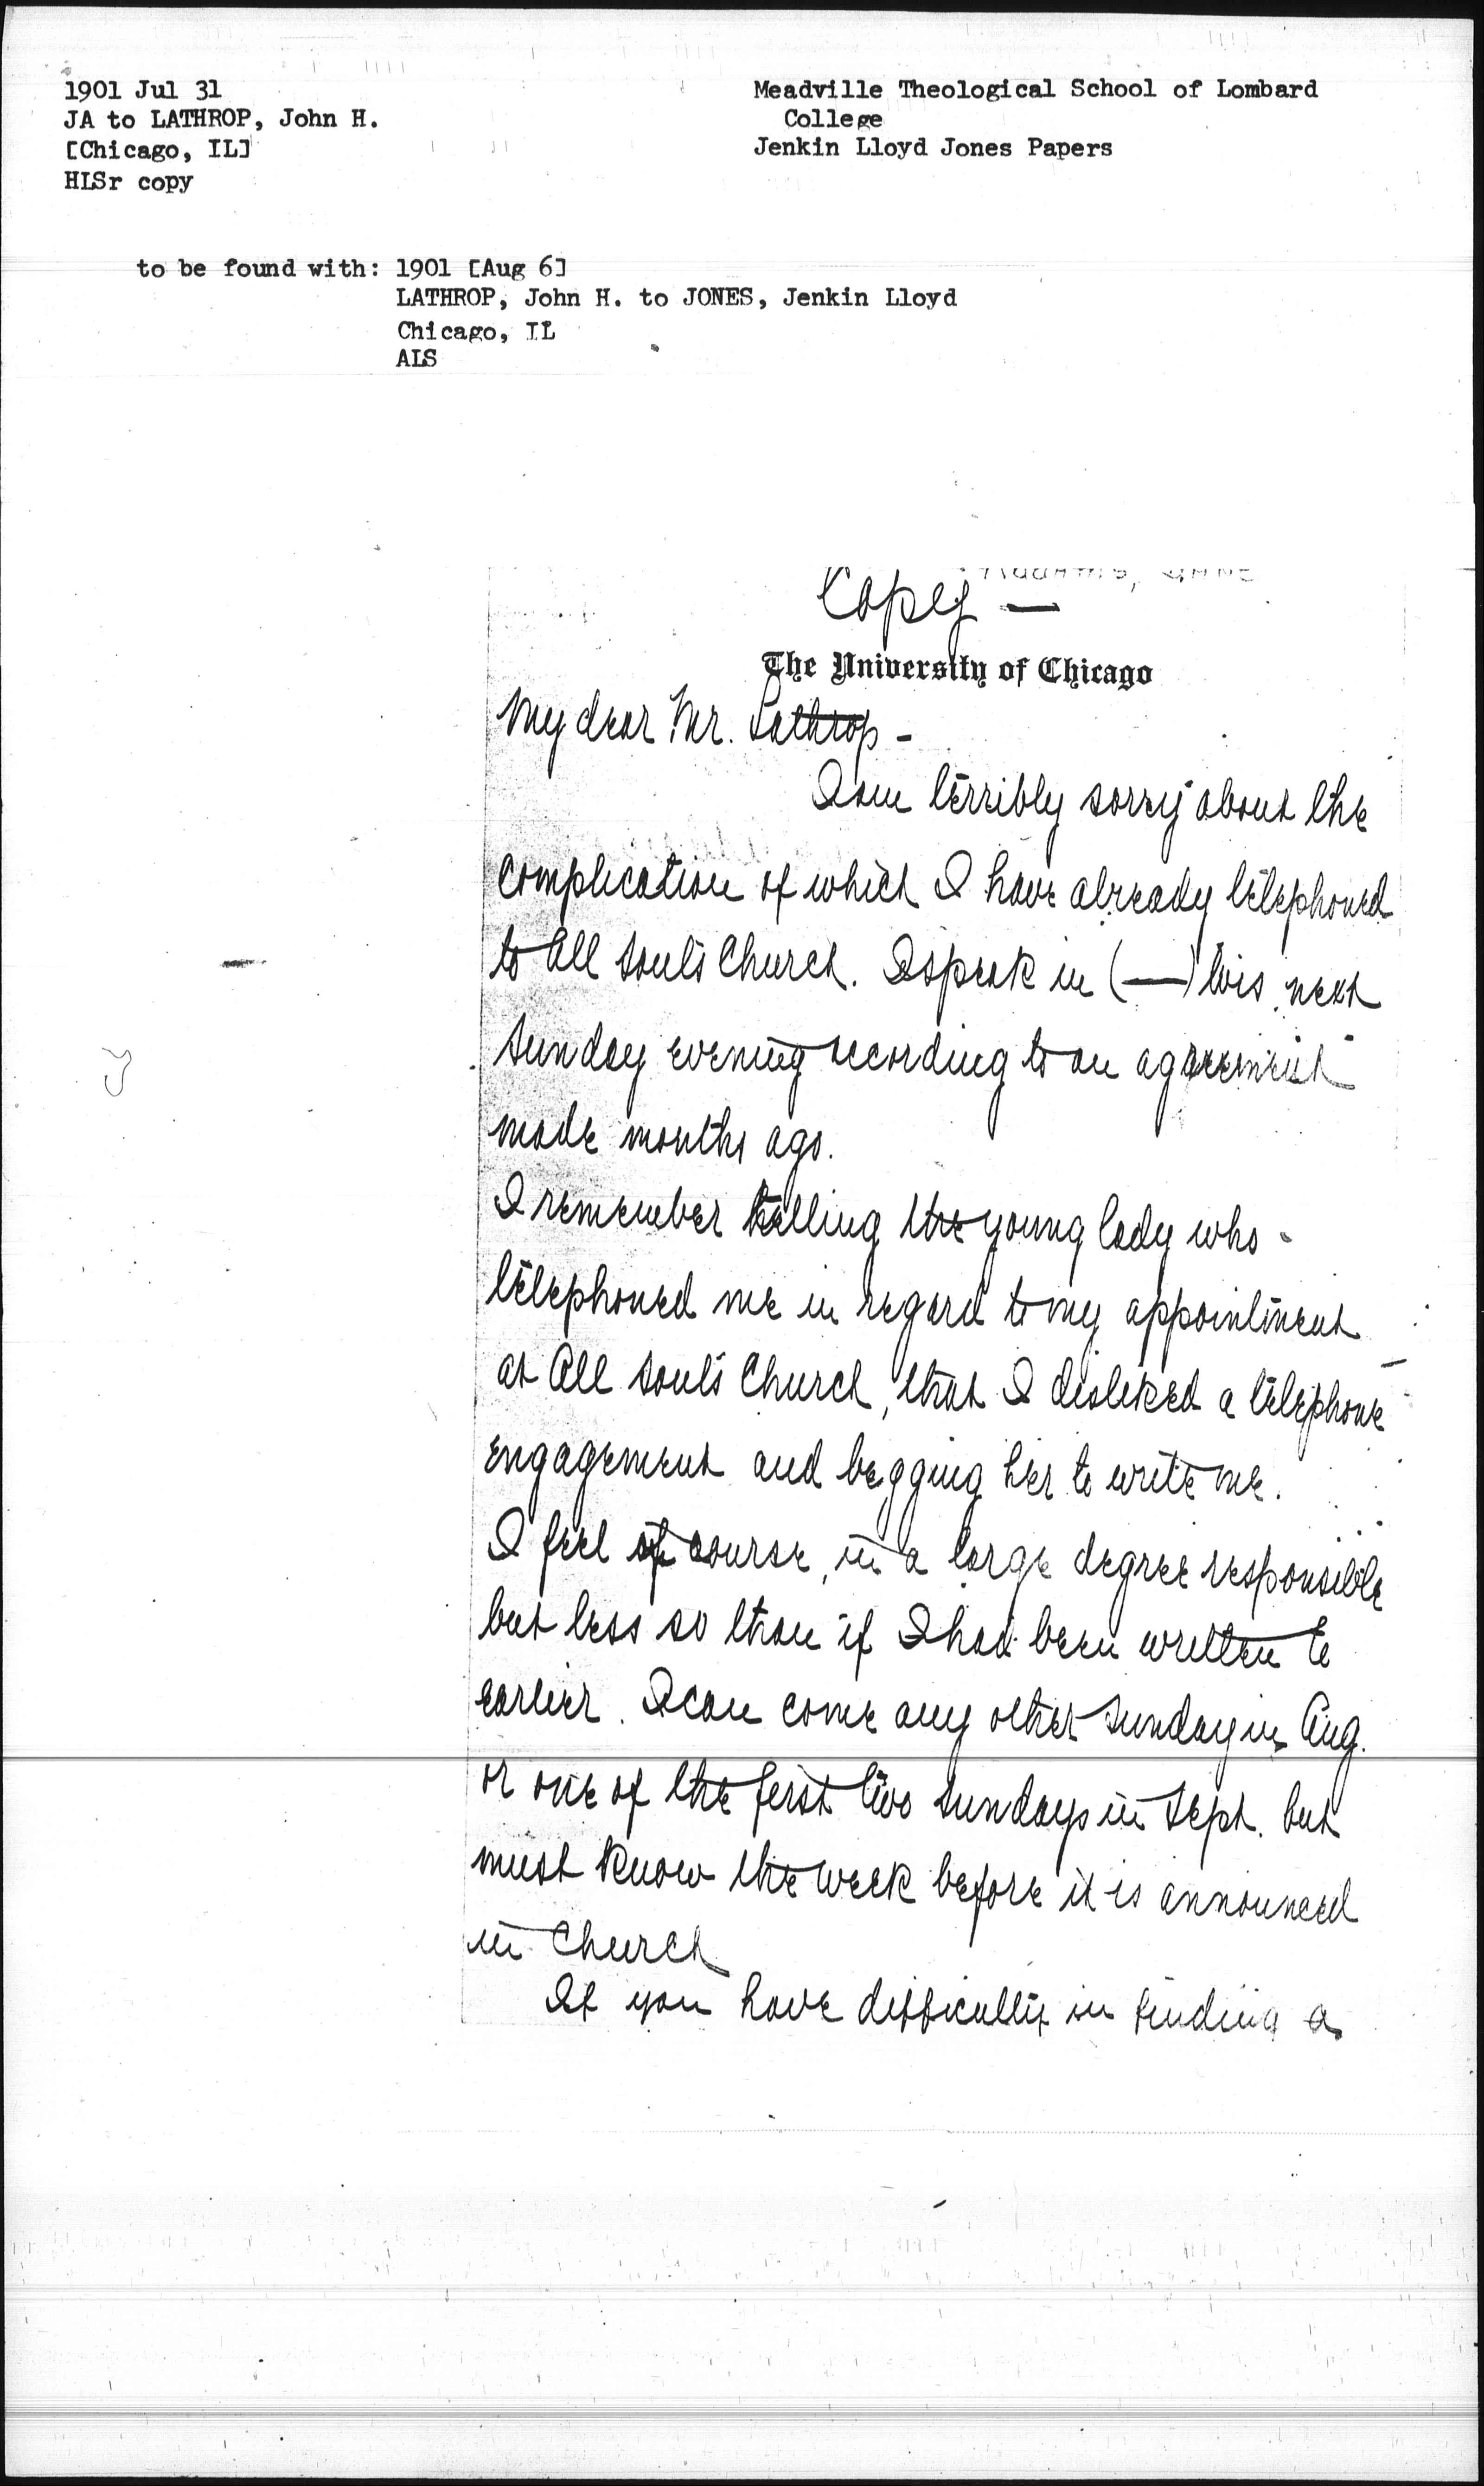 1901 Jul 31
JA to LATHROP, John H.
[Chicago, IL]
HLSr copy
Meadville Theological School of Lombard
College
Jenkin Lloyd Jones Papers
to be found with: 1901 [Aug 6]
LATHROP, John H. to JONES, Jenkin Lloyd
Chicago, IL
ALS
Copy —
The University of Chicago
My dear Mr. Lathrop -
I am terribly sorry about the
complication of which I have already telephoned
to All Soul's Church. I speak in (—) this next
Sunday evening according to an agreement
made months ago.
I remember telling the young lady who -
telephoned me in regard to my appointment
at All Soul's Church, that I disliked a telephone
engagement and begging her to write me.
I feel of course, in a large degree responsible
but less so than if I had been written to
earlier. I can come any other Sunday in Aug.
or one of the first two Sundays in Sept. but
must know the week before it is announced
in Church
If you have difficulty in finding a